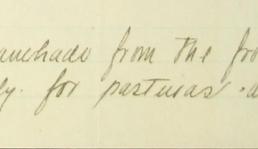 anchado from the fro
ly. for pasturas .a